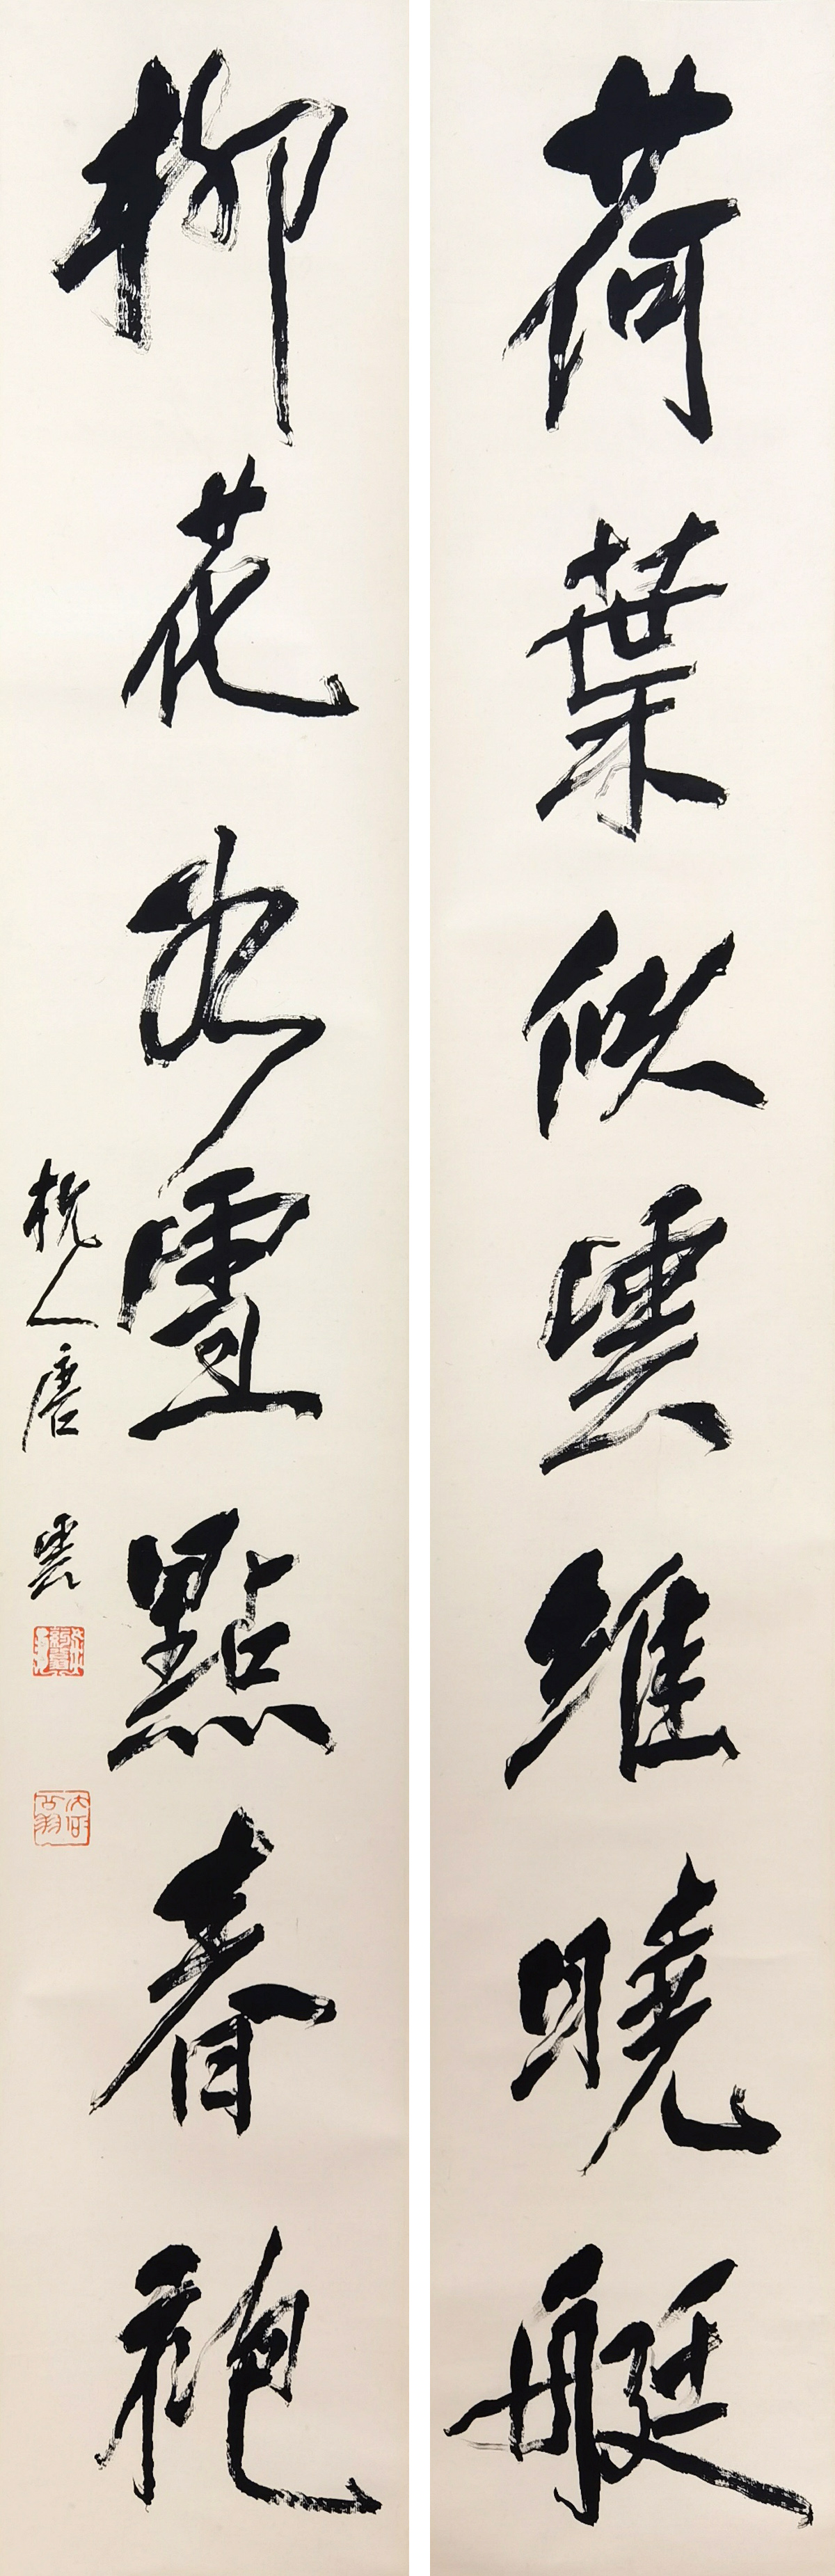 荷葉似雲維曉艇
柳花如雪點春袍
杭人唐雲